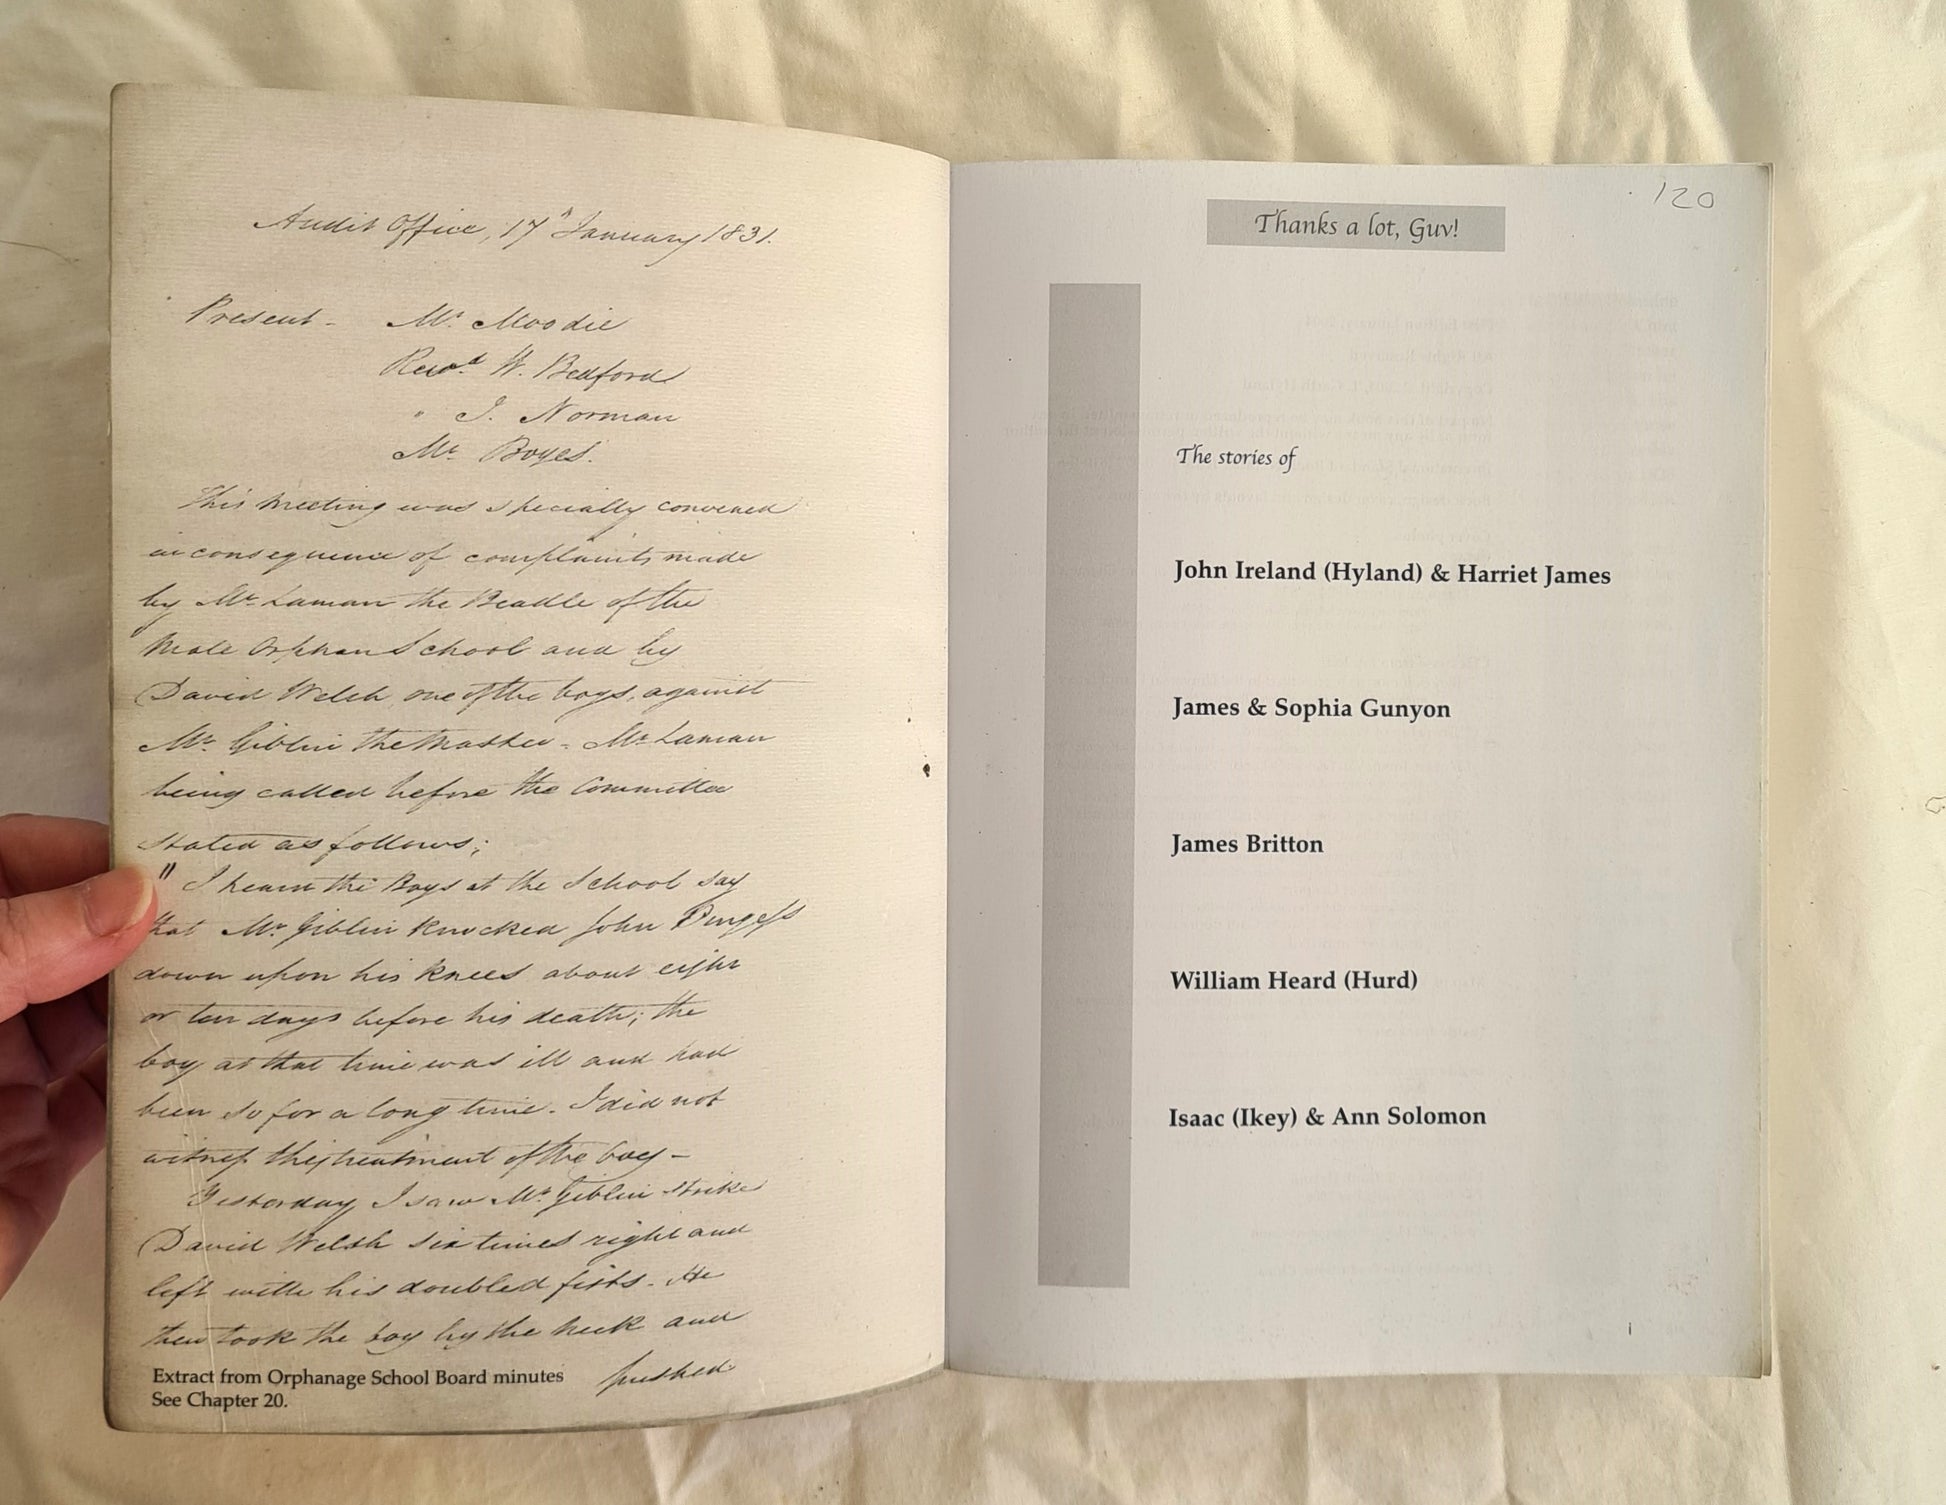 Audit Office, 17th January 1831.
Present - Mr. Moodie
Revd. W. Bedford
" J. Norman
Mr. Boyes.
This meeting was specially convened
in consequence of complaints made
by Mr. Laman the Beadle of the
Male Orphan School and by
David Welsh, one of the boys, against
Mr. Giblin the Master - Mr Laman
being called before the Committee
stated as follows;
" I heard the Boys at the School say
that Mr. Giblin knocked John Purgess
down upon his knees about eight
or ten days before his death; the
boy at that time was ill and had
been so for a long time. I did not
witness this treatment of the boy -
Yesterday I saw Mr. Giblin strike
David Welsh six times right and
left with his doubled fists. He
then took the boy by the neck and
pushed
Extract from Orphanage School Board minutes
See Chapter 20.
120
Thanks a lot, Guv!
The stories of
John Ireland (Hyland) & Harriet James
James & Sophia Gunyon
James Britton
William Heard (Hurd)
Isaac (Ikey) & Ann Solomon
i